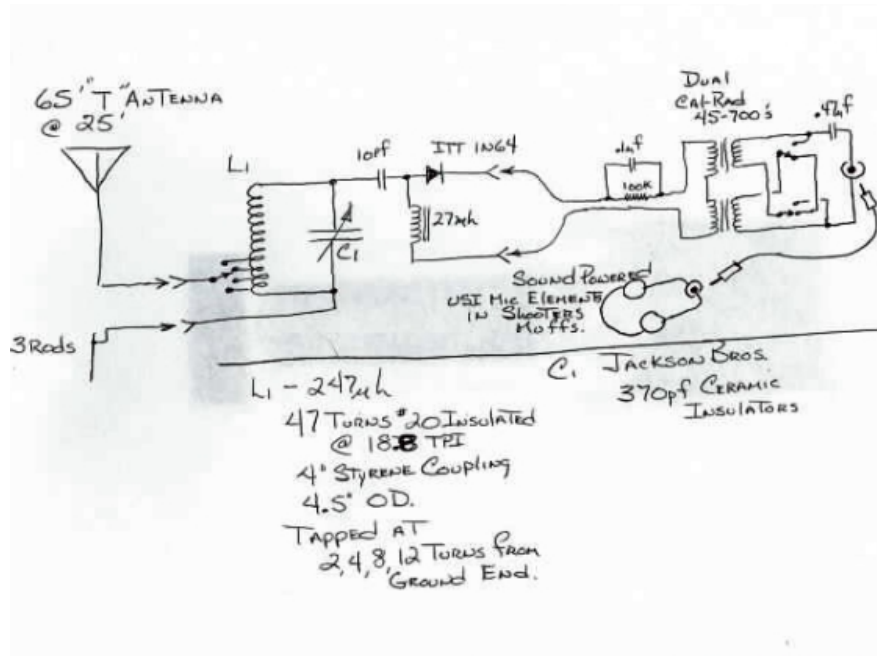 65' "T" ANTENNA
@ 25'
L1
10pf
ITT 1N64
27µh
C1
.1µf
100K
DUAL
Cal-Rad
45-700's
.47µf
3 RODS
SOUND POWERED
USI MIC ELEMENTS
IN SHOOTERS
MUFFS.
C1 JACKSON BROS.
370pf CERAMIC
INSULATORS
L1 - 247µh
47 TURNS #20 INSULATED
@ 18.8 TPI
4" STYRENE COUPLING
4.5" OD.
TAPPED AT
2,4,8,12 TURNS FROM
GROUND END.